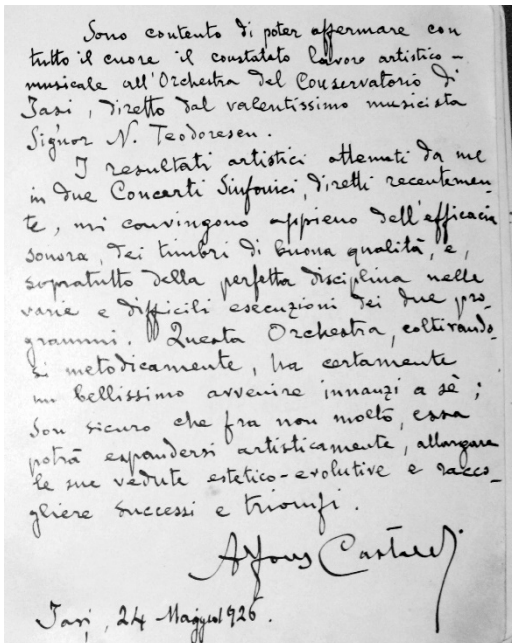 Sono contento di poter affermare con
tutto il cuore il constatato lavoro artistico-
musicale all'Orchestra del Conservatorio di
Iasi, diretto dal valentissimo musicista
Signor N. Teodorescu.
I resultati artistici ottenuti da me
in due Concerti Sinfonici, diretti recentemen-
te, mi convingono appieno dell'efficacia
sonora, dei timbri di buona qualità, e,
sopratutto della perfetta disciplina nelle
varie e difficili esecuzioni dei due pro-
grammi. Questa Orchestra, coltivando-
si metodicamente, ha certamente
un bellissimo avvenire innanzi a sè;
Son sicuro che fra non molto, essa
potrà espandersi artisticamente, allargare
le sue vedute estetico-evolutive e racco-
gliere successi e trionfi.
Alfons Castaldi
Iași, 24 Maggio 1926.